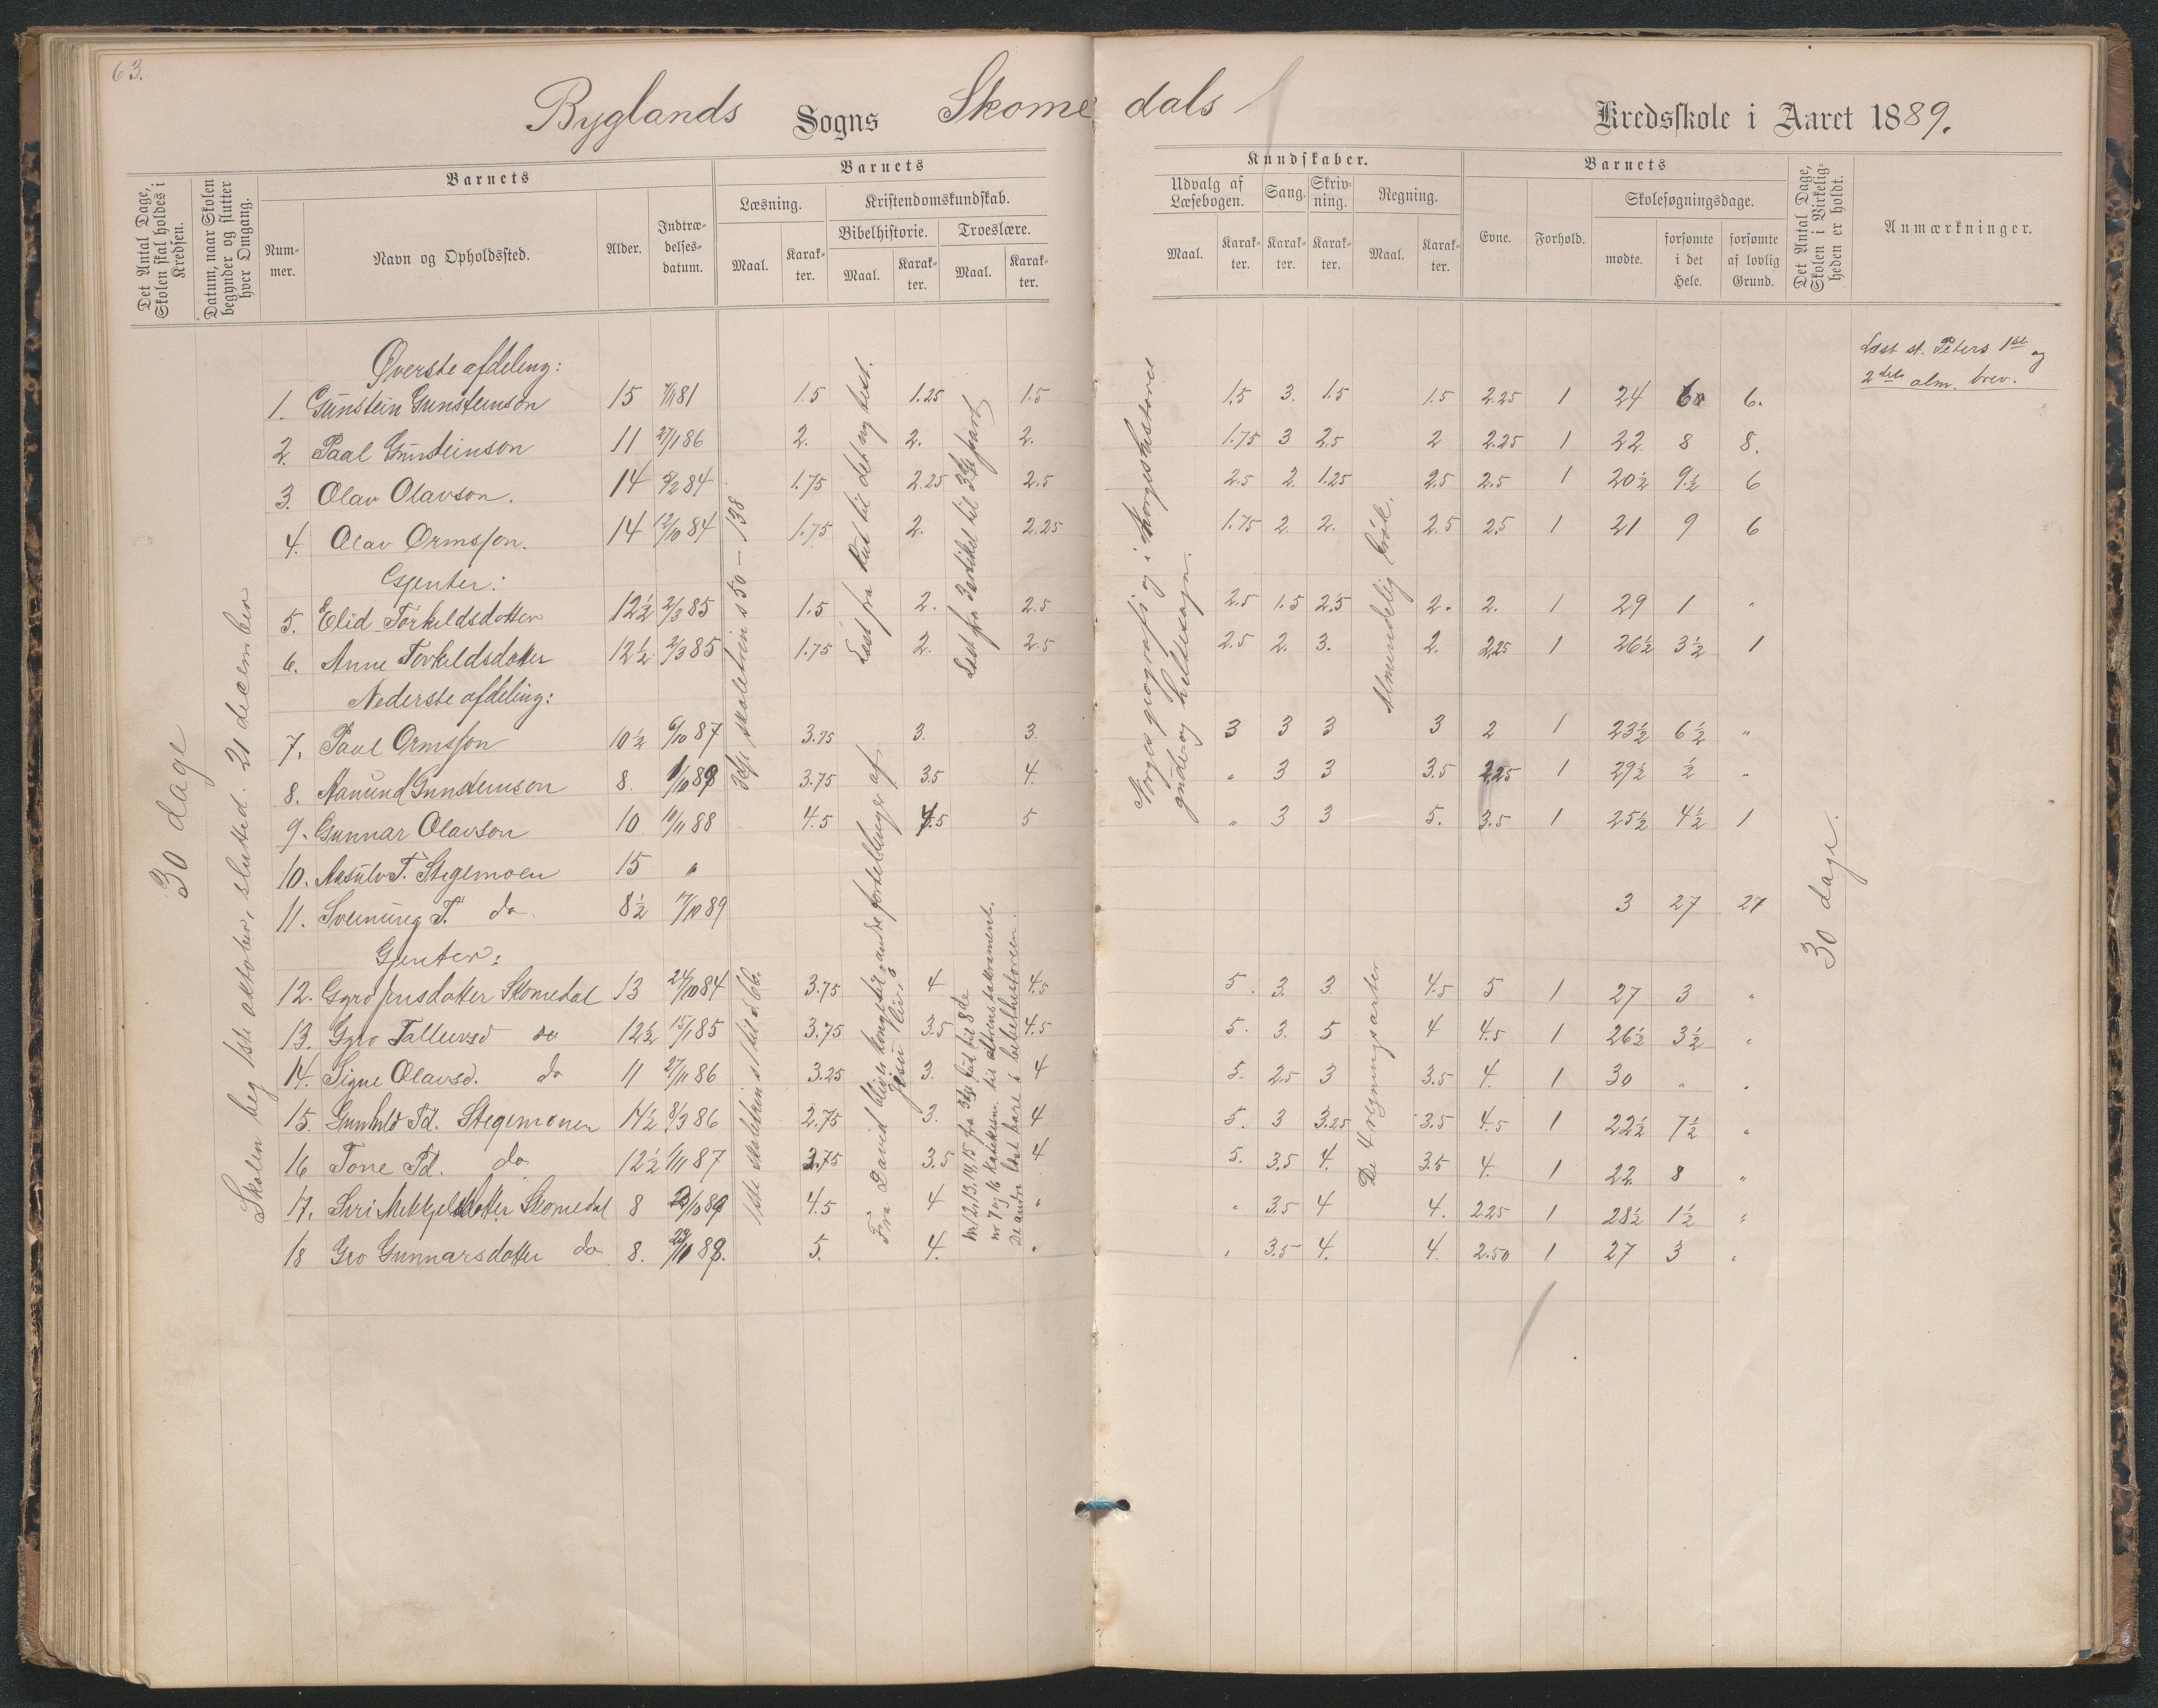 63.
Byglands Sogns Skomedals Kredsskole i Aaret 1889.
Det Antal Dage, Skolen skal holdes i Kredsen.
Datum, naar Skolen begynder og slutter hver Omgang.
Barnets
Nummer.
Navn og Opholdssted.
Alder.
Indtrædelsesdatum.
Barnets
Læsning.
Maal.
Karakter.
Kristendomskundskab.
Bibelhistorie.
Maal.
Karakter.
Troeslære.
Maal.
Karakter.
Kundskaber.
Udvalg af Læsebogen.
Maal.
Karakter.
Sang.
Karakter.
Skrivning.
Karakter.
Regning.
Maal.
Karakter.
Barnets
Evne.
Forhold.
Skolesøgningsdage.
mødte.
forsømte i det Hele.
forsømte af lovlig Grund.
Det Antal Dage, Skolen i Virkeligheden er holdt.
Anmærkninger.
30 dage
Skolen beg 1ste oktober, slutted. 21 december
Øverste afdeling:
1. Gunstein Gunsteinson 15 81 1.5 1.25 1.5 1.5 3. 1.5 1.5 2.25 1 24 6 6.
2. Paal Gunsteinson 11 27/1 86 2. 2. 2. 1.75 3 2.5 2 2.25 1 22 8 8.
3. Olav Olavson. 14 84 1.75 2.25 2.5 2.5 2. 1.25 2.5 2.5 1 20½ 9½ 6
4. Olav Ormsson. 14 12/10 84 1.75 2. 2.25 1.75 2 2. 2.5 2.5 1 21 9 6
Gjenter:
5. Elid Torkildsdotter 12½ 2/3 85 1.5 2. 2.5 2.5 1.5 2.5 2. 2. 1 29 1 "
6. Anne Torkildsdotter 12½ 2/3 85 1.75 2. 2.5 2.5 2. 3. 2. 2.25 1 26½ 3½ 1
Nederste afdeling:
7. Paul Ormsson 10½ 6/10 87 3.75 3. 3. 3 3 3 3 2 1 23½ 6½ "
8. Aanund Gunsteinson 8. 1/10 89 3.75 3.5 4. " 3 3 3.5 2.25 1 29½ ½ "
9. Gunnar Olavson 10 10/11 88 4.5 4.5 5 " 3 3 5. 3.5 1 25½ 4½ 1
10. Aasulv T. Stegemoen 15 "
11. Sveinung T. do 8½ 17/10 89 3 27 27
Gjenter:
12. Gyro Jensdotter Skomedal 13 24/10 84 3.75 4 4.5 5. 3. 3. 4.5 5 1 27 3 "
13. Gyro Tallevsd do 12½ 15/1 85 3.75 3.5 4.5 5. 3. 5 4 4.5 1 26½ 3½ "
14. Signe Olavsd. do 11 27/11 86 3.25 3. 4 5. 2.5 3 3.5 4. 1 30 " "
15. Gunhild Td. Stegemoen 14½ 8/3 86 2.75 3. 4 5. 3 3.25 3.5 4.5 1 22½ 7½ "
16 Tone Td. do 12½ 1/11 87 3.75 3.5 4 5. 3.5 4. 3.5 4. 1 22 8 "
17. Siri Mikkjelsdotter Skomedal 8 89 4.5 4 " " 3.5 4 4. 2.25 1 28½ 1½ "
18 Gro Gunnarsdotter do 8. 89. 5. 4. " " 3.5 4. 4. 2.50 1 27 3 "
3dje skoletrin s 50 – 138
Læst fra Rut til det ny test.
Læst fra 3 artikel til 3dje part
Norges geografi og i Norgeshistorie
gude- og heltesagn.
Almindelig brøk.
1ste skoletrin s 1 til s 66.
Fra David bliver konge til andre fortellinger af
Jesu liv
nr 12, 13, 14, 15 fra 3dje bud til 8de
nr 7 og 16 katekism. til altrens sakrament.
De andre læst bare i bibelhistorien.
De 4 regningsarter
30 dage.
Læst st. Peters 1ste og
2det alm. brev.